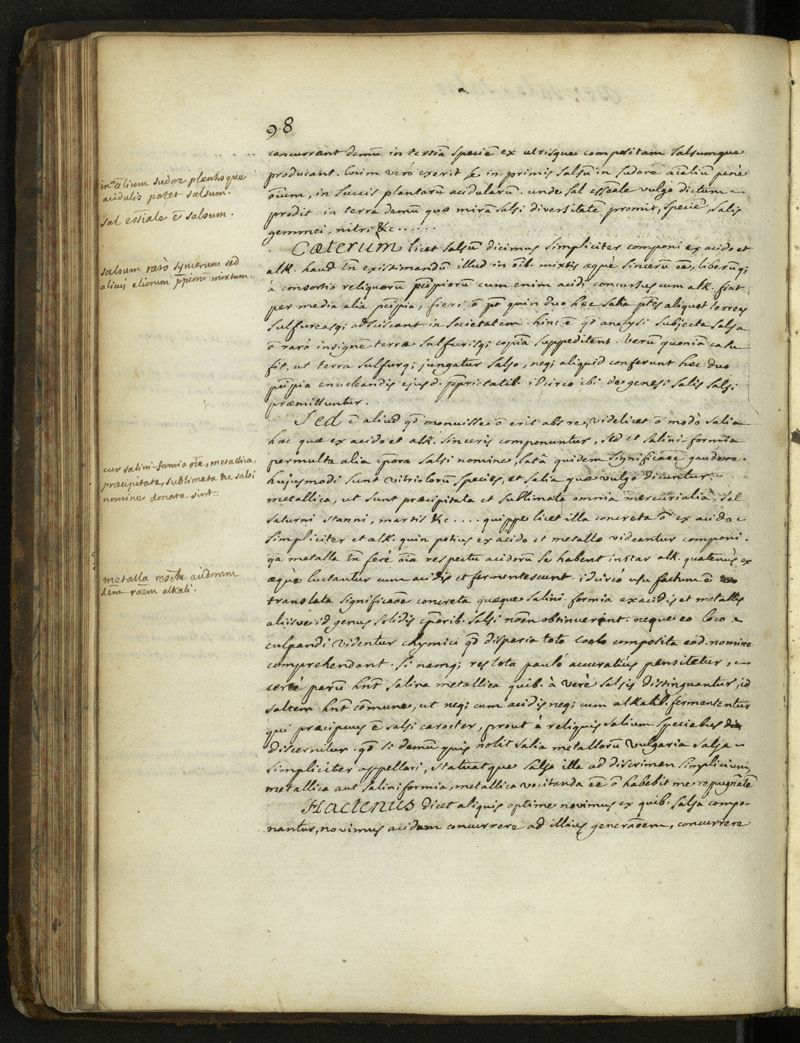 98
concurrant demū in tertiā speciē ex utrisque compositam salsumque
producant. Enim verò exerit se in primis salsū in sudore aīaliū penè
oīum, in succis plantarū acidularū. unde sal essēale vulgo dictum
prodit in terra demū quæ mirā salsi diversitatē promit, speciē salis
gemmei, nitri &c......
Cæterum licet salsū dicimus simpliciter componi ex acido et
alk. haud tn̄ existimandū illud in oīb. mixtis æquè sincerū eē, liberūq;
à consortio reliquorū pn̄cipiorū cum enim acidi concursus cum alk. fiat
per media alia pn̄cipia, fieri ō pōt quin duo hæc salia ptēs aliquot terreas
sulfureasq; adsciscant in societatem. hinc ē qd analysi subjecta salsa
ō rarò insignē terræ sulfurisq; copiā suppeditent. verū quoniā casu
fit, ut terra sulfurq; jungatur salso, neq; aliquid conferunt hæc duo
pn̄cipia enucleandis ejusd. pprietatib. idcirco ibi de genesi salis salsi
præmittuntur.
Sed ē aliud qd monuisse ō erit abs re, videlicet ō modò salia
hæc quæ ex acido et alk. sinceris componuntur, sed et salini-formia
permulta alia cp̄ora salsi nomine, latâ quidem significaōe gaudere.
hujusmodi sunt vitriolorū species, et salia quæ vulgo dicuntur
metallica, ut sunt præcipitata et sublimata omnia mercurialia, sal
saturni stanni, martis &c.... quippe licet illa concreta ō ex acido
simpliciter et alk. quin potius ex acido et metallo videantur componi.
qa metalla tn̄ ferè oīa respectu acidorū se habent instar alk. quatenus ex
æque luctantur cum acidis et fermentescunt. idcircò usu factum ē
translata significaōe concreta quæque salini-formia ex acidis et metallis
aliisve id genus solidis cp̄orib. salsi noēn obtinuerint. neque eo loco
culpandi videntur chymici qd disparia toto coelo composita eod. nomine
comprehendant. si namq; res tota paulò accuratius pensitetur,
certè parū hn̄t salina metallica quib. à verè salsis distinguantur, id
saltem hn̄t com̄une, ut neq; cum acidis neq; cum alkalib. fermententur
qui præcipuus ē salsi caracter, prout à reliquis salium speciebus
discernitur. qd si demū quis nolit salia metallorū vulgaria salsa
simpliciter appellari, statuatque salsa illa ad discrimen simplicium,
metallica aut saliniformia, metallica vocitanda eē ō habebit me repugnātē
Hactenus dicet aliquis optime novimus ex quib. salsa compo-
nantur, novimus acidum concurrere ad illius generaōem, concurrere
in aīlium sudore plantisque
acidulis patet salsum.
sal essīale ē salsum.
salsum rarò syncerum sed
alicus aliorum ppiorū mixtum.
cur salini-formia oīa, metallica,
præcipitata, sublimata &c salsi
nomine donata sint.
metalla acidorum
alkali.